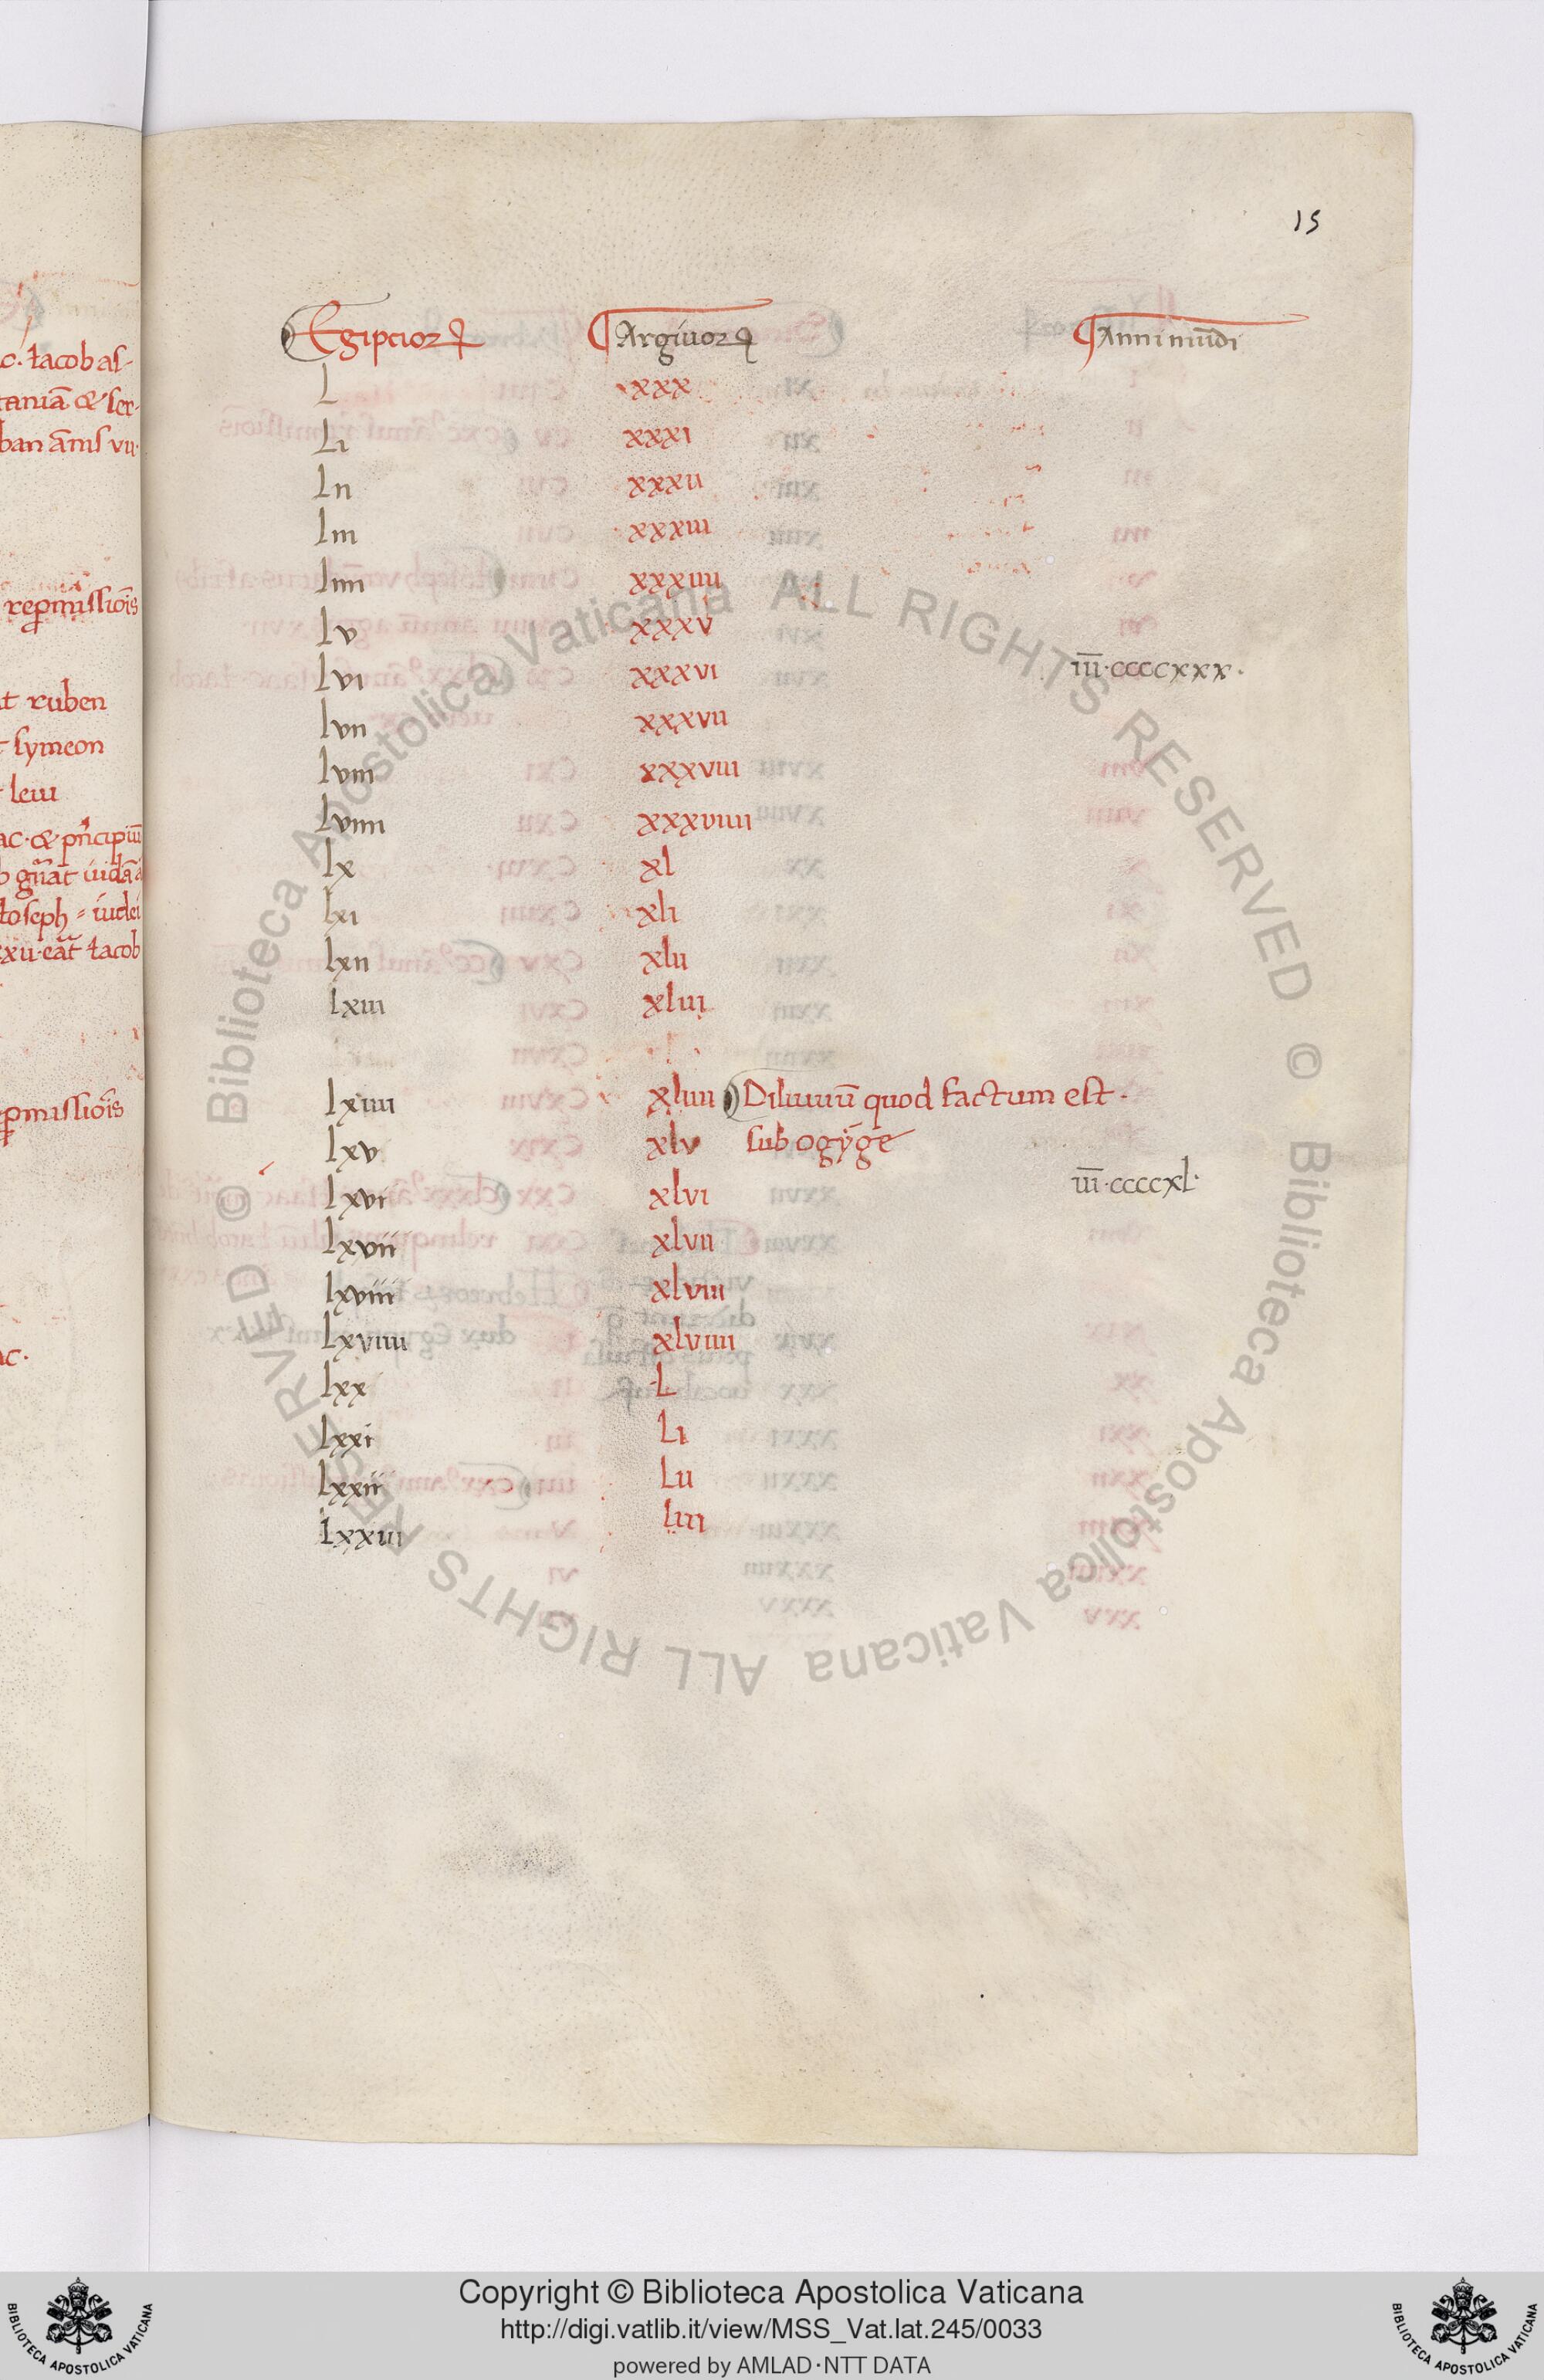 15
c. Iacob as-
taniā & ser-
ban ānis vii.
rep̱missiōis
t ruben
symeon
leui
ac. & pn̄cipiū
b gn̄at iudā
Ioseph
xii. eāt Iacob
p̱missiōis
ac.
Egipcioꝝ Argiuoꝝ Anni mūdi
L xxx
Li xxxi
Lii xxxii
Liii xxxiii
Liiii xxxiiii
Lv xxxv
Lvi xxxvi iii̅·ccccxxx·
Lvii xxxvii
Lviii xxxviii
Lviiii xxxviiii
Lx xl
Lxi xli
Lxii xlii
Lxiii xliii
Lxiiii xliiii Diluuiū quod factum est.
Lxv xlv sub ogyge
Lxvi xlvi iii̅·ccccxl·
Lxvii xlvii
Lxviii xlviii
Lxviiii xlviiii
Lxx L
Lxxi Li
Lxxii Lii
Lxxiii Liii
© Biblioteca Apostolica Vaticana ALL RIGHTS RESERVED © Biblioteca Apostolica Vaticana ALL RIGHTS RESERVED
Copyright © Biblioteca Apostolica Vaticana
http://digi.vatlib.it/view/MSS_Vat.lat.245/0033
powered by AMLAD·NTT DATA
BIBLIOTECA APOSTOLICA VATICANA
BIBLIOTECA APOSTOLICA VATICANA